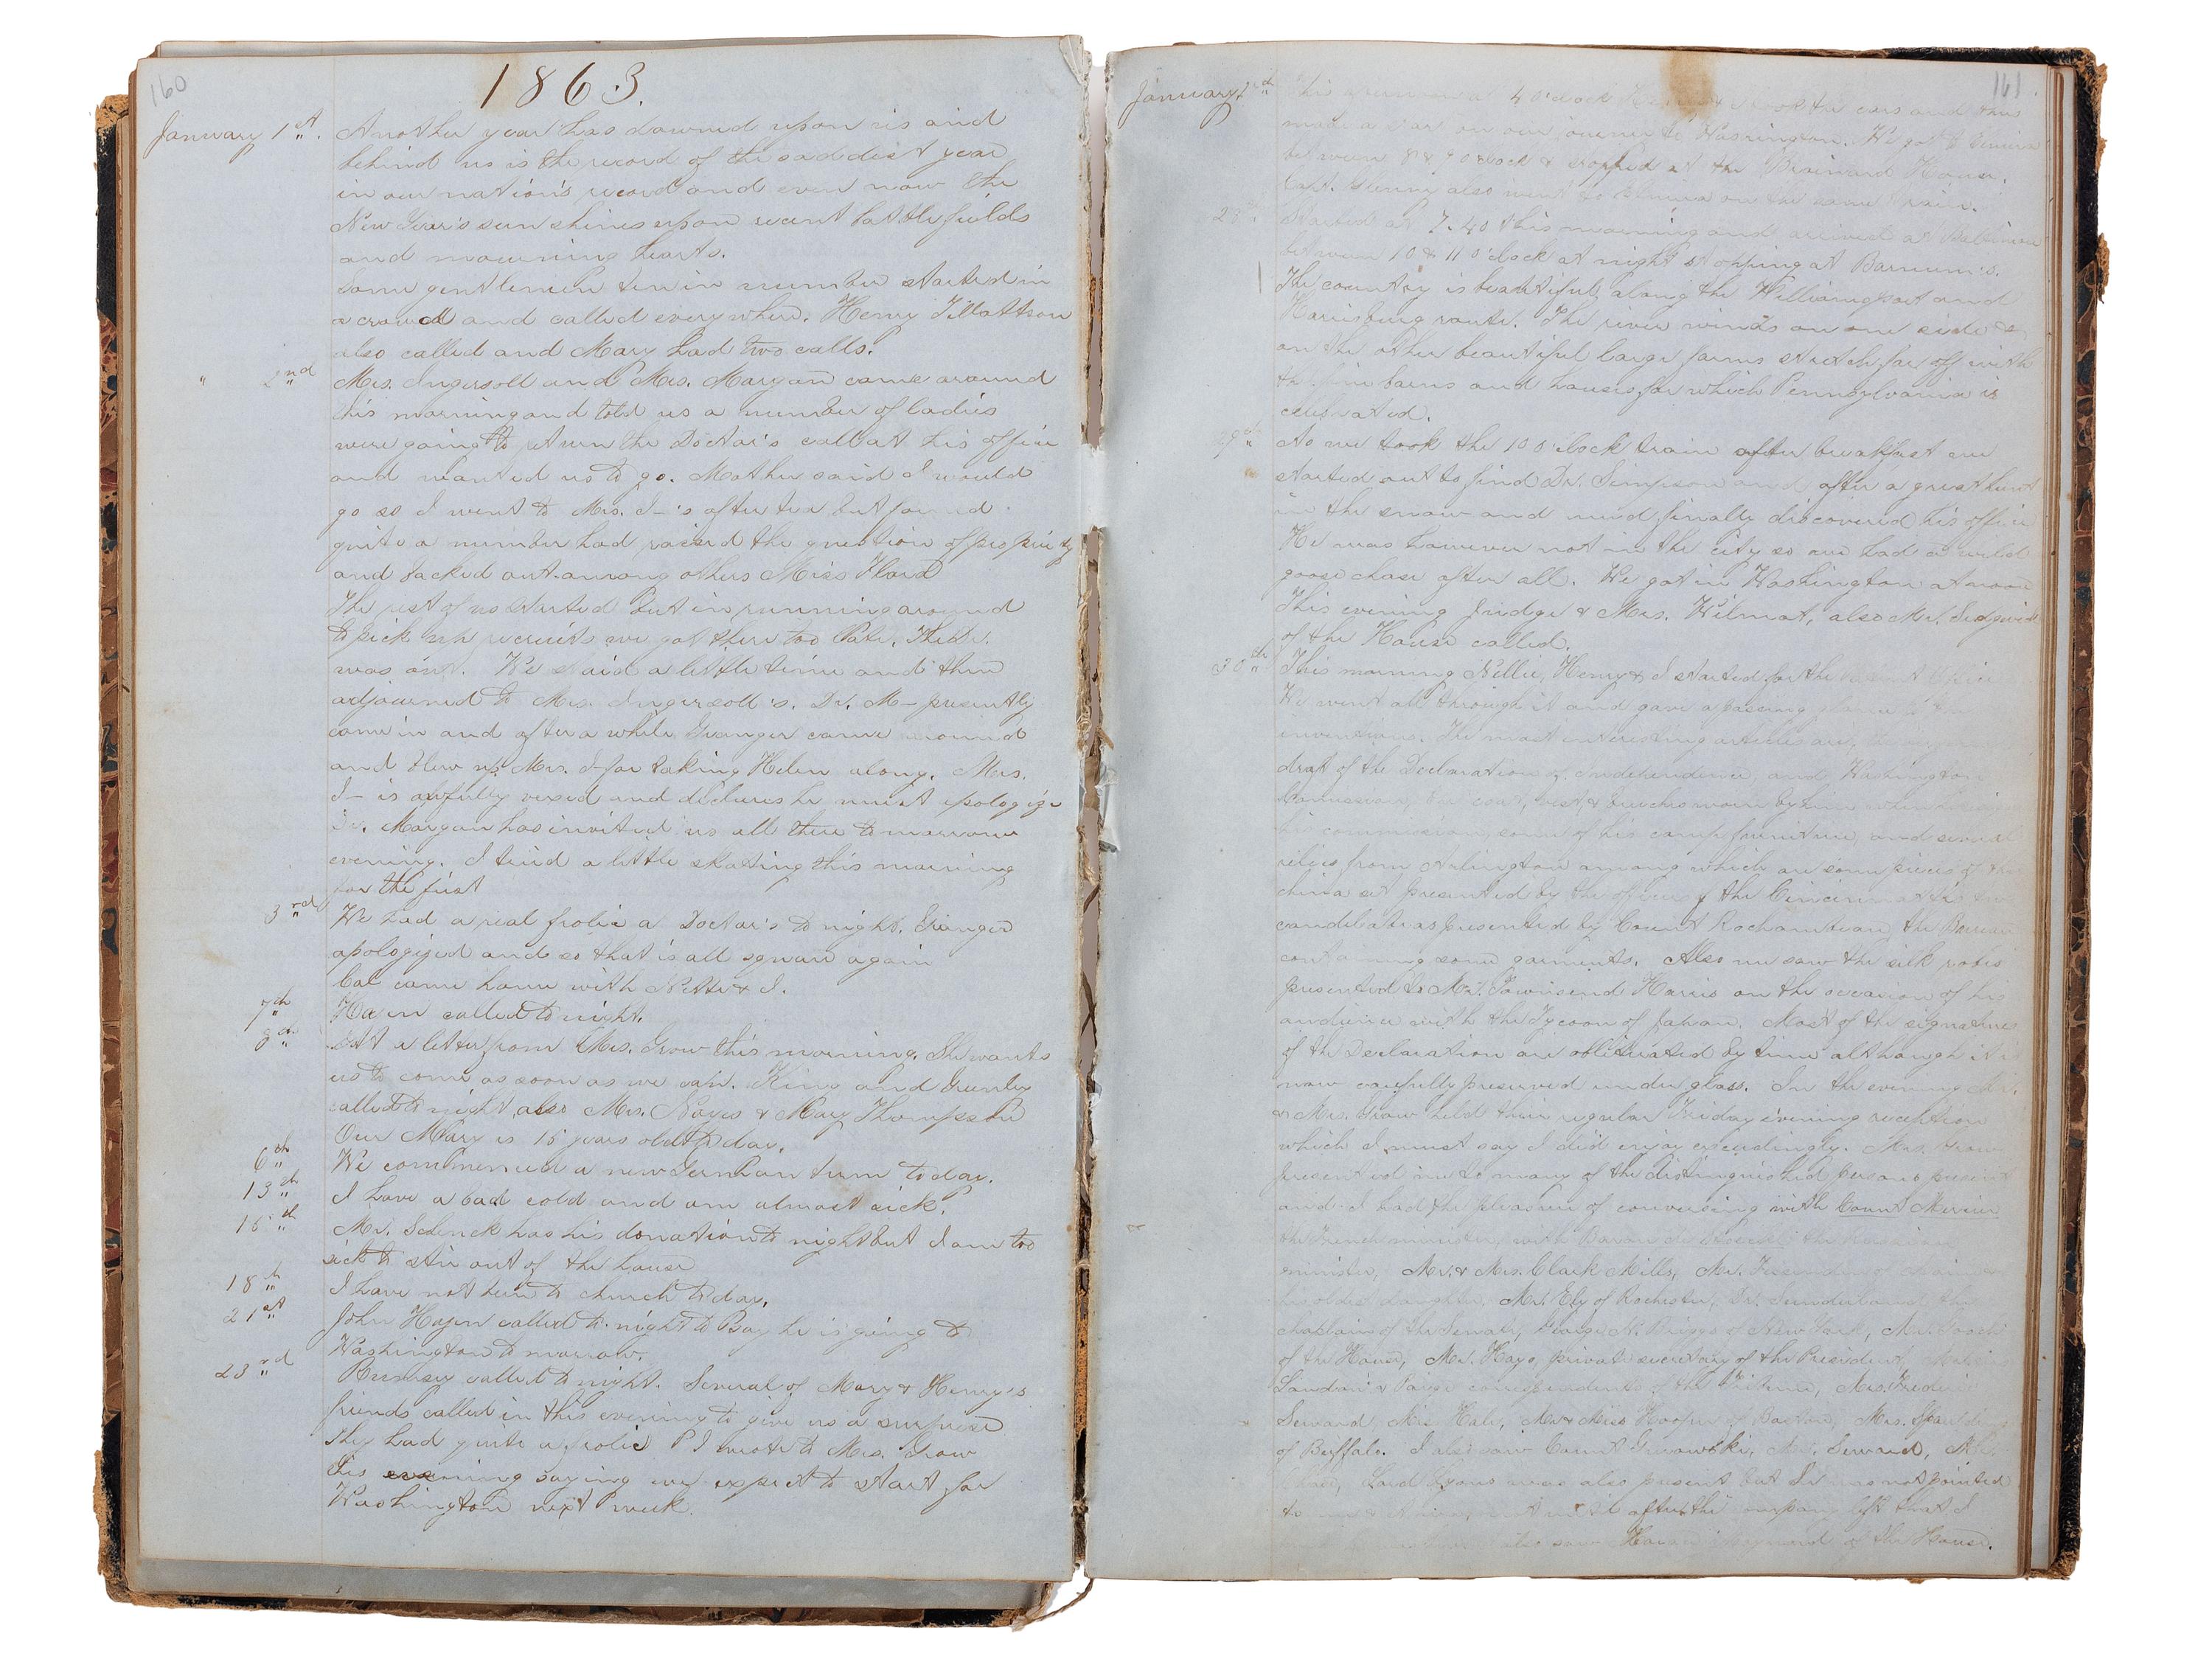 160
1863.
January 1st. Another year has dawned upon us and
behind us is the record of the saddest year
in our nation's record and even now the
New Year's sun shines upon recent battle fields
and mourning hearts.
Some gentlemen ten in number started in
a crowd and called everywhere. Henry Tillottson
also called and Mary had two calls.
" 2nd Mrs. Ingersoll and Mrs. Morgan came around
this morning and told us a number of ladies
were going to return the Doctor's call at his office
and wanted us to go. Mother said I would
go so I went to Mrs. I—'s after tea but found
quite a number had raised the question of propriety
and backed out. among others Miss
The rest of us started but in running around
to pick up recruits we got there too late. The Dr.
was out. We staid a little time and then
adjourned to Mrs. Ingersoll's. Dr. M— presently
came in and after a while Granger came around
and blew up Mrs. I— for taking Helen along. Mrs.
I— is awfully vexed and declares he must apologize
Dr. Morgan has invited us all there tomorrow
evening. I tried a little skating this morning
for the first
3rd We had a real frolic a Doctor's to night. Granger
apologized and so that is all square again
Cal came home with Nette & I.
7th called to night.
8th Got a letter from Mrs. Grow this morning. She wants
us to come as soon as we can. King and
called to night also Mrs. Noyes & Mary Thompson
Our Mary is 15 years old to day.
6th We commenced a new German term to day.
13th I have a bad cold and am almost sick.
15th Mr. Schenck has his donation to night but I am too
sick to stir out of the house
18th I have not been to church to day.
21st John called to night to Bay he is going to
Washington to morrow.
23rd Rumsey called to night. Several of Mary & Henry's
friends called in this evening to give us a surprise
They had quite a frolic I wrote to Mrs. Grow
this evening saying we expect to start for
Washington next week.
161
January This 4 o'clock took the cars and
made a start on our journey to Washington. We got to Elmira
between 8 & 9 o'clock & stopped at the Brainard House.
Capt. also went to Elmira on the same train.
28th Started at 7.40 this morning and arrived at Baltimore
between 10 & 11 o'clock at night stopping at Barnum's.
The country is beautiful along the Williamsport and
Harrisburg route. The river winds on one side &
on the other beautiful large farms stretch far off with
the fine barns and houses for which Pennsylvania is
celebrated.
29th As we took the 10 o'clock train after breakfast we
started out to find Dr. Simpson and after a great hunt
in the snow and mud finally discovered his office
He was however not in the city so we had a wild
goose chase after all. We got in Washington at noon
This evening Judge & Mrs. Wilmot, also Mr. Sedgwick
of the House called.
30th This morning Nellie, Henry & I started for the Patent Office
We went all through it and gave a passing glance to the
inventions. The most interesting articles are, the
draft of the Declaration of Independence, and Washington
Commission, the coat, vest & breeches worn by him when
his commission, some of his camp furniture, and several
relics from Arlington among which are some pieces of the
china set presented by the officers of the Cincinnatti, the
candelabras presented by Count Rochambeau, the Bureau
containing some garments. Also we saw the silk robes
presented to Mr. Townsend Harris on the occasion of his
audience with the Tycoon of Japan. Most of the signatures
of the Declaration are obliterated by time although it is
now carefully preserved under glass. In the evening Mr.
& Mrs. Grow held their regular Friday evening reception
which I must say I did enjoy exceedingly. Mrs. Grow
presented me to many of the distinguished persons present
and I had the pleasure of conversing with Count Mercier
the French minister, with Baron de Stoeckl the Russian
minister, Mr. & Mrs. Clark Mills, Mr.
his oldest daughter, Mr. Ely of Rochester, Dr. Sunderland the
chaplain of the Senate, George N. Briggs of New York,
of the House, Mr. Hays, private secretary of the President,
Landon & Paige correspondents of the Tribune, Mrs. Frederic
Seward, Mrs. Hale, Mr & Miss Hooper of Boston, Mrs. Spaulding
of Buffalo. I also saw Count Gurowski, Mr. Seward, Mr.
Lord Lyons was also present but he was not pointed
to me until after the company left that I
also saw of the House.